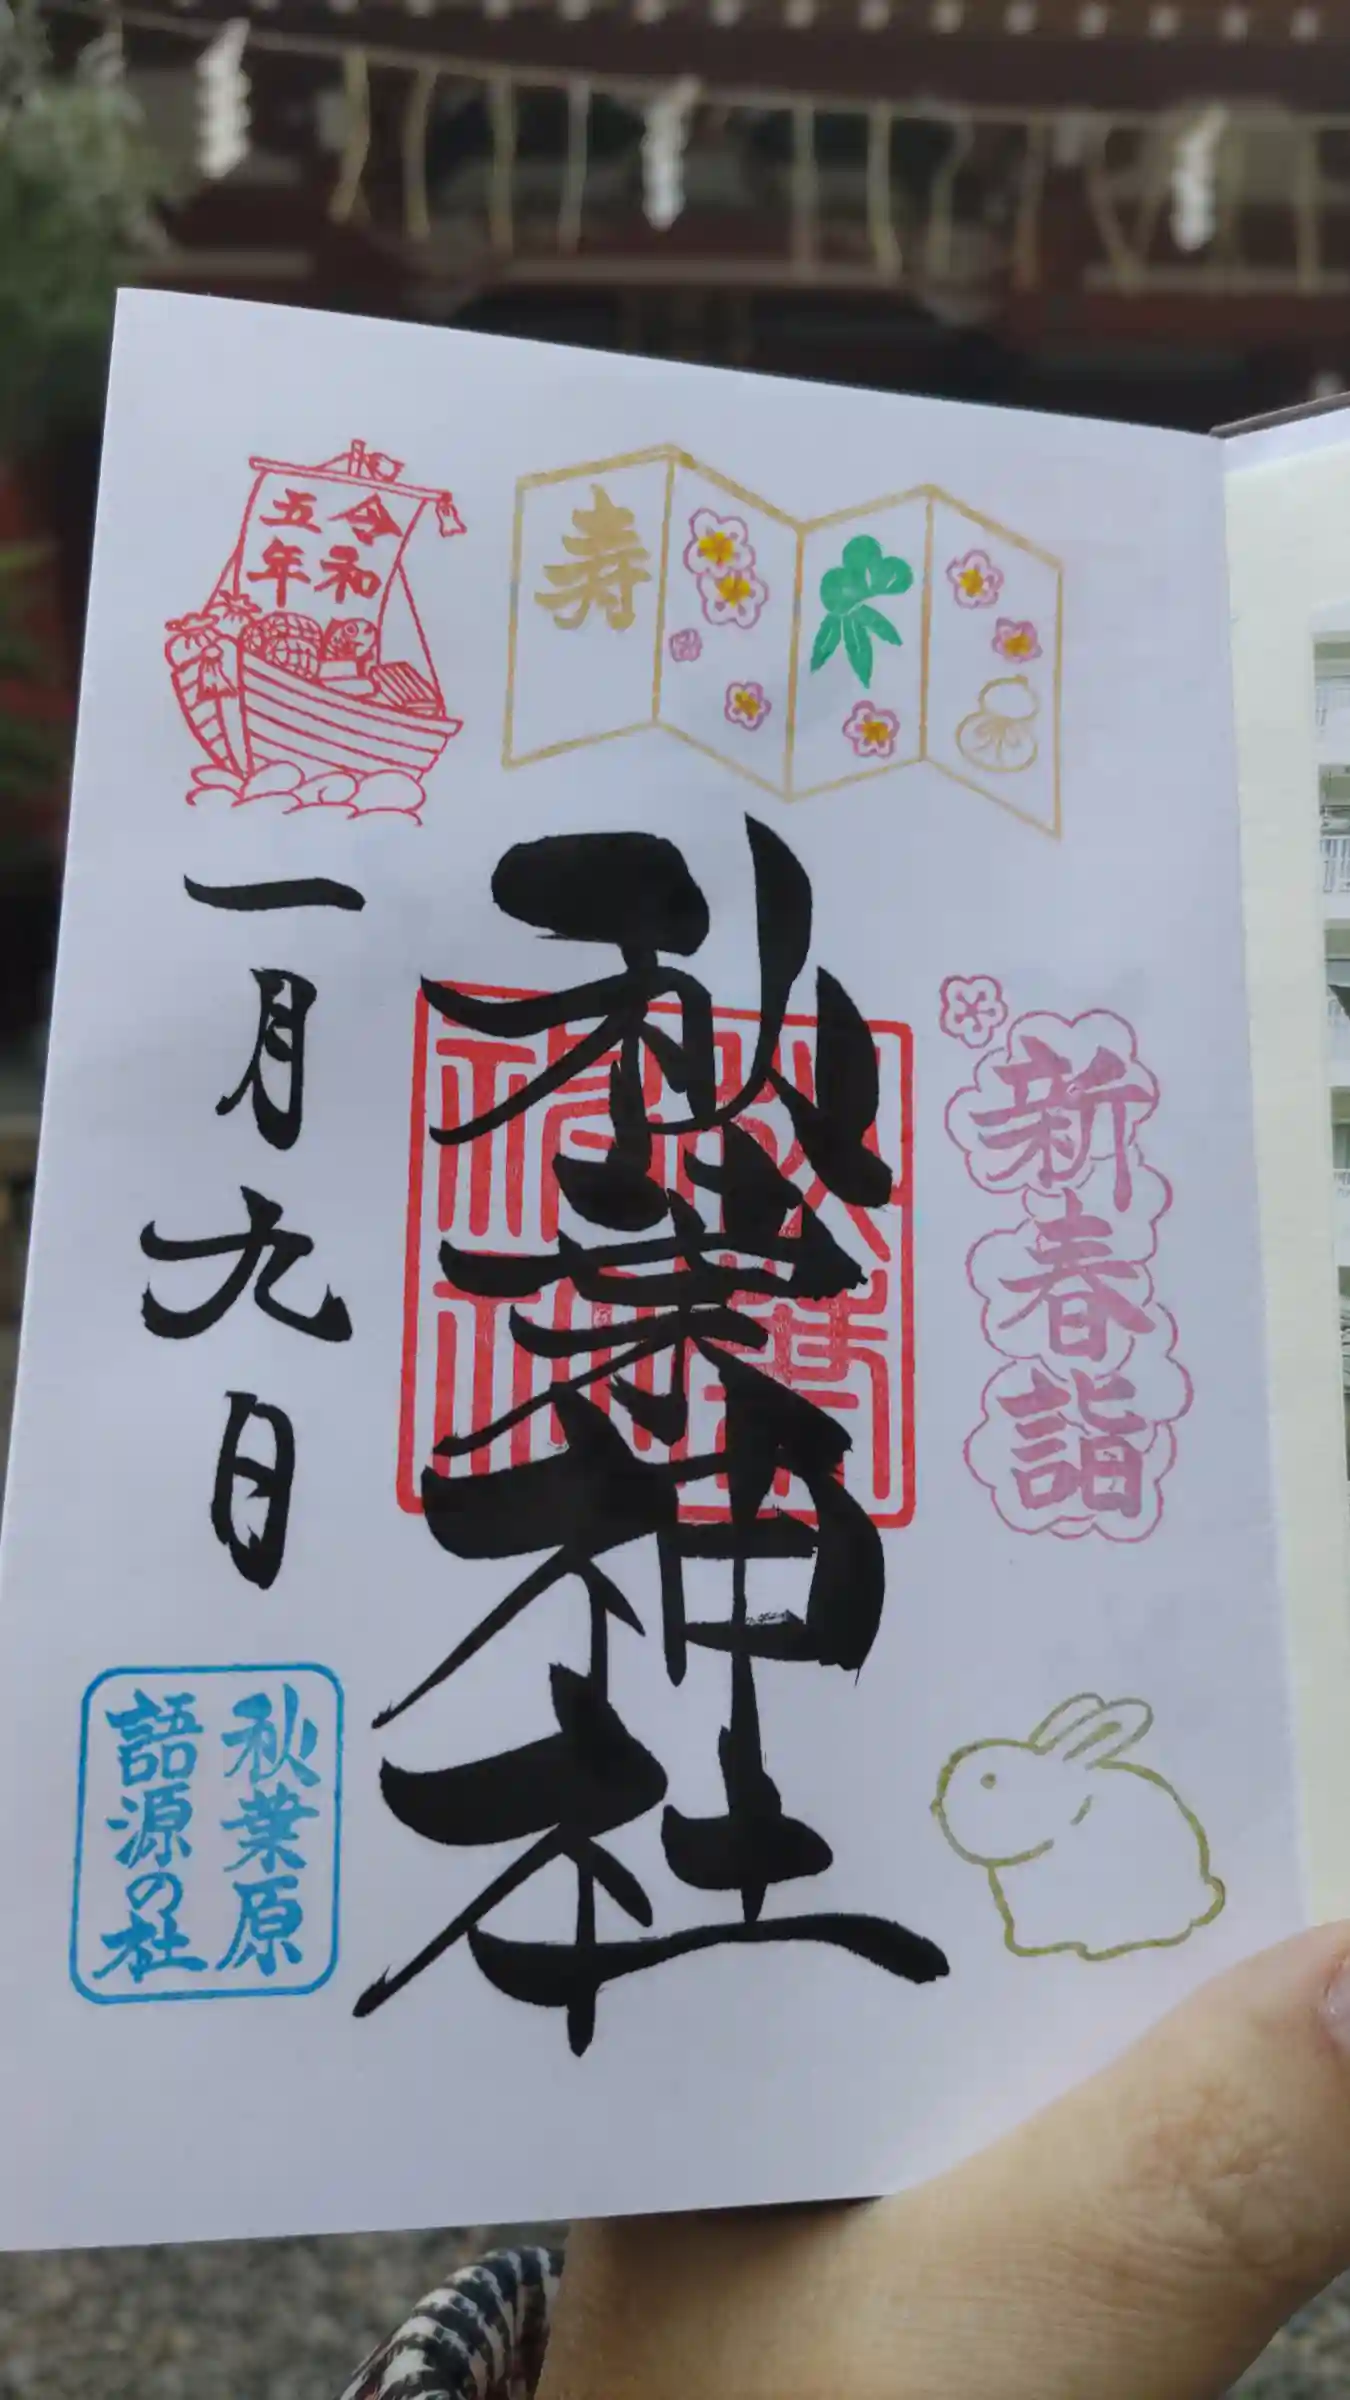 寿
令和
五年
新春詣
秋葉神社
一月九日
秋葉原
語源の社